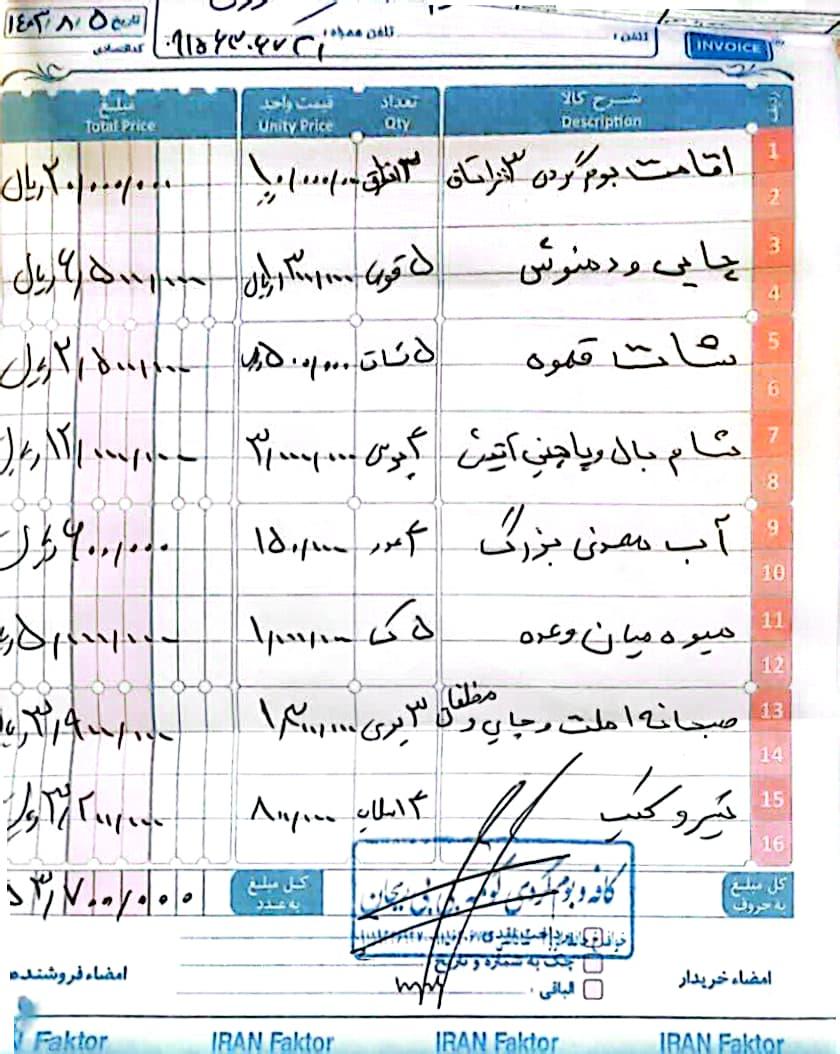 تاریخ ۱۴۰۳/۸/۵
کد اقتصادی
تلفن همراه:
تلفن:
INVOICE
ردیف شرح کالا تعداد قیمت واحد مبلغ
Description Qty Unity Price Total Price
1 اقامت بوم گردی ۳ ۳ ۱۰/۰۰۰/۰۰۰ ۲۰/۰۰۰/۰۰۰ ریال
2
3 چایی و دمنوش ۵ قوری ۱/۳۰۰/۰۰۰ ریال ۶/۵۰۰/۰۰۰ ریال
4
5 شات قهوه ۵ شات ۵۰۰/۰۰۰ ریال ۲/۵۰۰/۰۰۰ ریال
6
7 شام بال و پاچینی آتیش ۴ پرس ۳/۰۰۰/۰۰۰ ۱۲/۰۰۰/۰۰۰ ریال
8
9 آب معدنی بزرگ ۴ عدد ۱۵۰/۰۰۰ ۶۰۰/۰۰۰ ریال
10
11 میوه میان وعده ۵ ک ۱/۰۰۰/۰۰۰ ۵/۰۰۰/۰۰۰ ریال
12
13 صبحانه املت و چای و مخلفات ۳ پرس ۱/۳۰۰/۰۰۰ ۳/۹۰۰/۰۰۰ ریال
14
15 شیر و کیک ۴ ۸۰۰/۰۰۰ ۳/۲۰۰/۰۰۰ ریال
16
کل مبلغ به حروف
کل مبلغ به عدد
۵۳/۷۰۰/۰۰۰
کافه و بوم گردی کوچه بی بی ریحان
پرداخت نقدی
چک به شماره و تاریخ
الباقی:
امضاء خریدار
امضاء فروشنده
Faktor IRAN Faktor IRAN Faktor IRAN Faktor